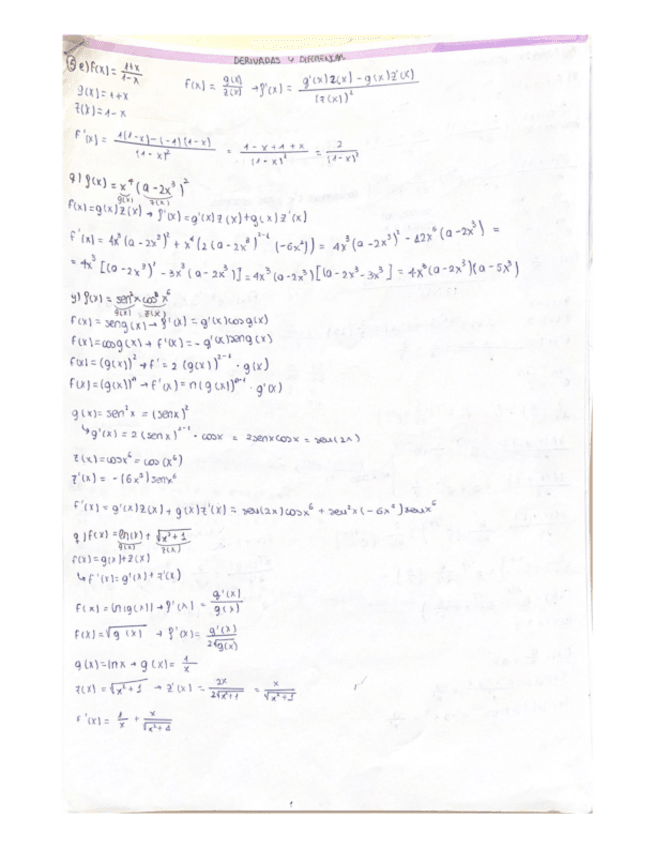 DERIVADAS Y DIFERENCIAL
③ e) f(x) = (1+x)/(1-x)
f(x) = g(x)/z(x) → f'(x) = (g'(x)z(x) - g(x)z'(x))/(z(x))²
g(x) = 1+x
z(x) = 1-x
f'(x) = (1(1-x)-(-1)(1-x))/(1-x)² = (1-x+1+x)/(1-x)² = 2/(1-x)²
f(x) = x⁴(a-2x³)²
g(x) z(x)
f(x) = g(x)z(x) → f'(x) = g'(x)z(x)+g(x)z'(x)
f'(x) = 4x³(a-2x³)² + x⁴(2(a-2x³)²⁻¹(-6x²)) = 4x³(a-2x³)² - 12x⁶(a-2x³) =
= 4x³[(a-2x³)² - 3x³(a-2x³)] = 4x³(a-2x³)[(a-2x³-3x³] = 4x³(a-2x³)(a-5x³)
y) f(x) = sen²x cos x⁶
g(x) z(x)
f(x) = sen g(x) → f'(x) = g'(x)cos g(x)
f(x) = cos g(x) → f'(x) = -g'(x)sen g(x)
f(x) = (g(x))² → f' = 2(g(x))²⁻¹ · g(x)
f(x) = (g(x))ⁿ → f'(x) = n(g(x))ⁿ⁻¹ · g'(x)
g(x) = sen²x = (senx)²
↳ g'(x) = 2(senx)²⁻¹ · cosx = 2senxcosx = sen(2x)
z(x) = cosx⁶ = cos(x⁶)
z'(x) = -(6x⁵)senx⁶
f'(x) = g'(x)z(x)+g(x)z'(x) = sen(2x)cosx⁶ + sen²x(-6x⁵)senx⁶
f(x) = ln(x) + √(x²+1)
g(x) z(x)
f(x) = g(x)+z(x)
↳ f'(x) = g'(x)+z'(x)
f(x) = ln(g(x)) → f'(x) = g'(x)/g(x)
f(x) = √g(x) → f'(x) = g'(x)/2√g(x)
g(x) = lnx → g(x) = 1/x
z(x) = √(x²+1) → z'(x) = 2x/2√(x²+1) = x/√(x²+1)
f'(x) = 1/x + x/√(x²+1)
1